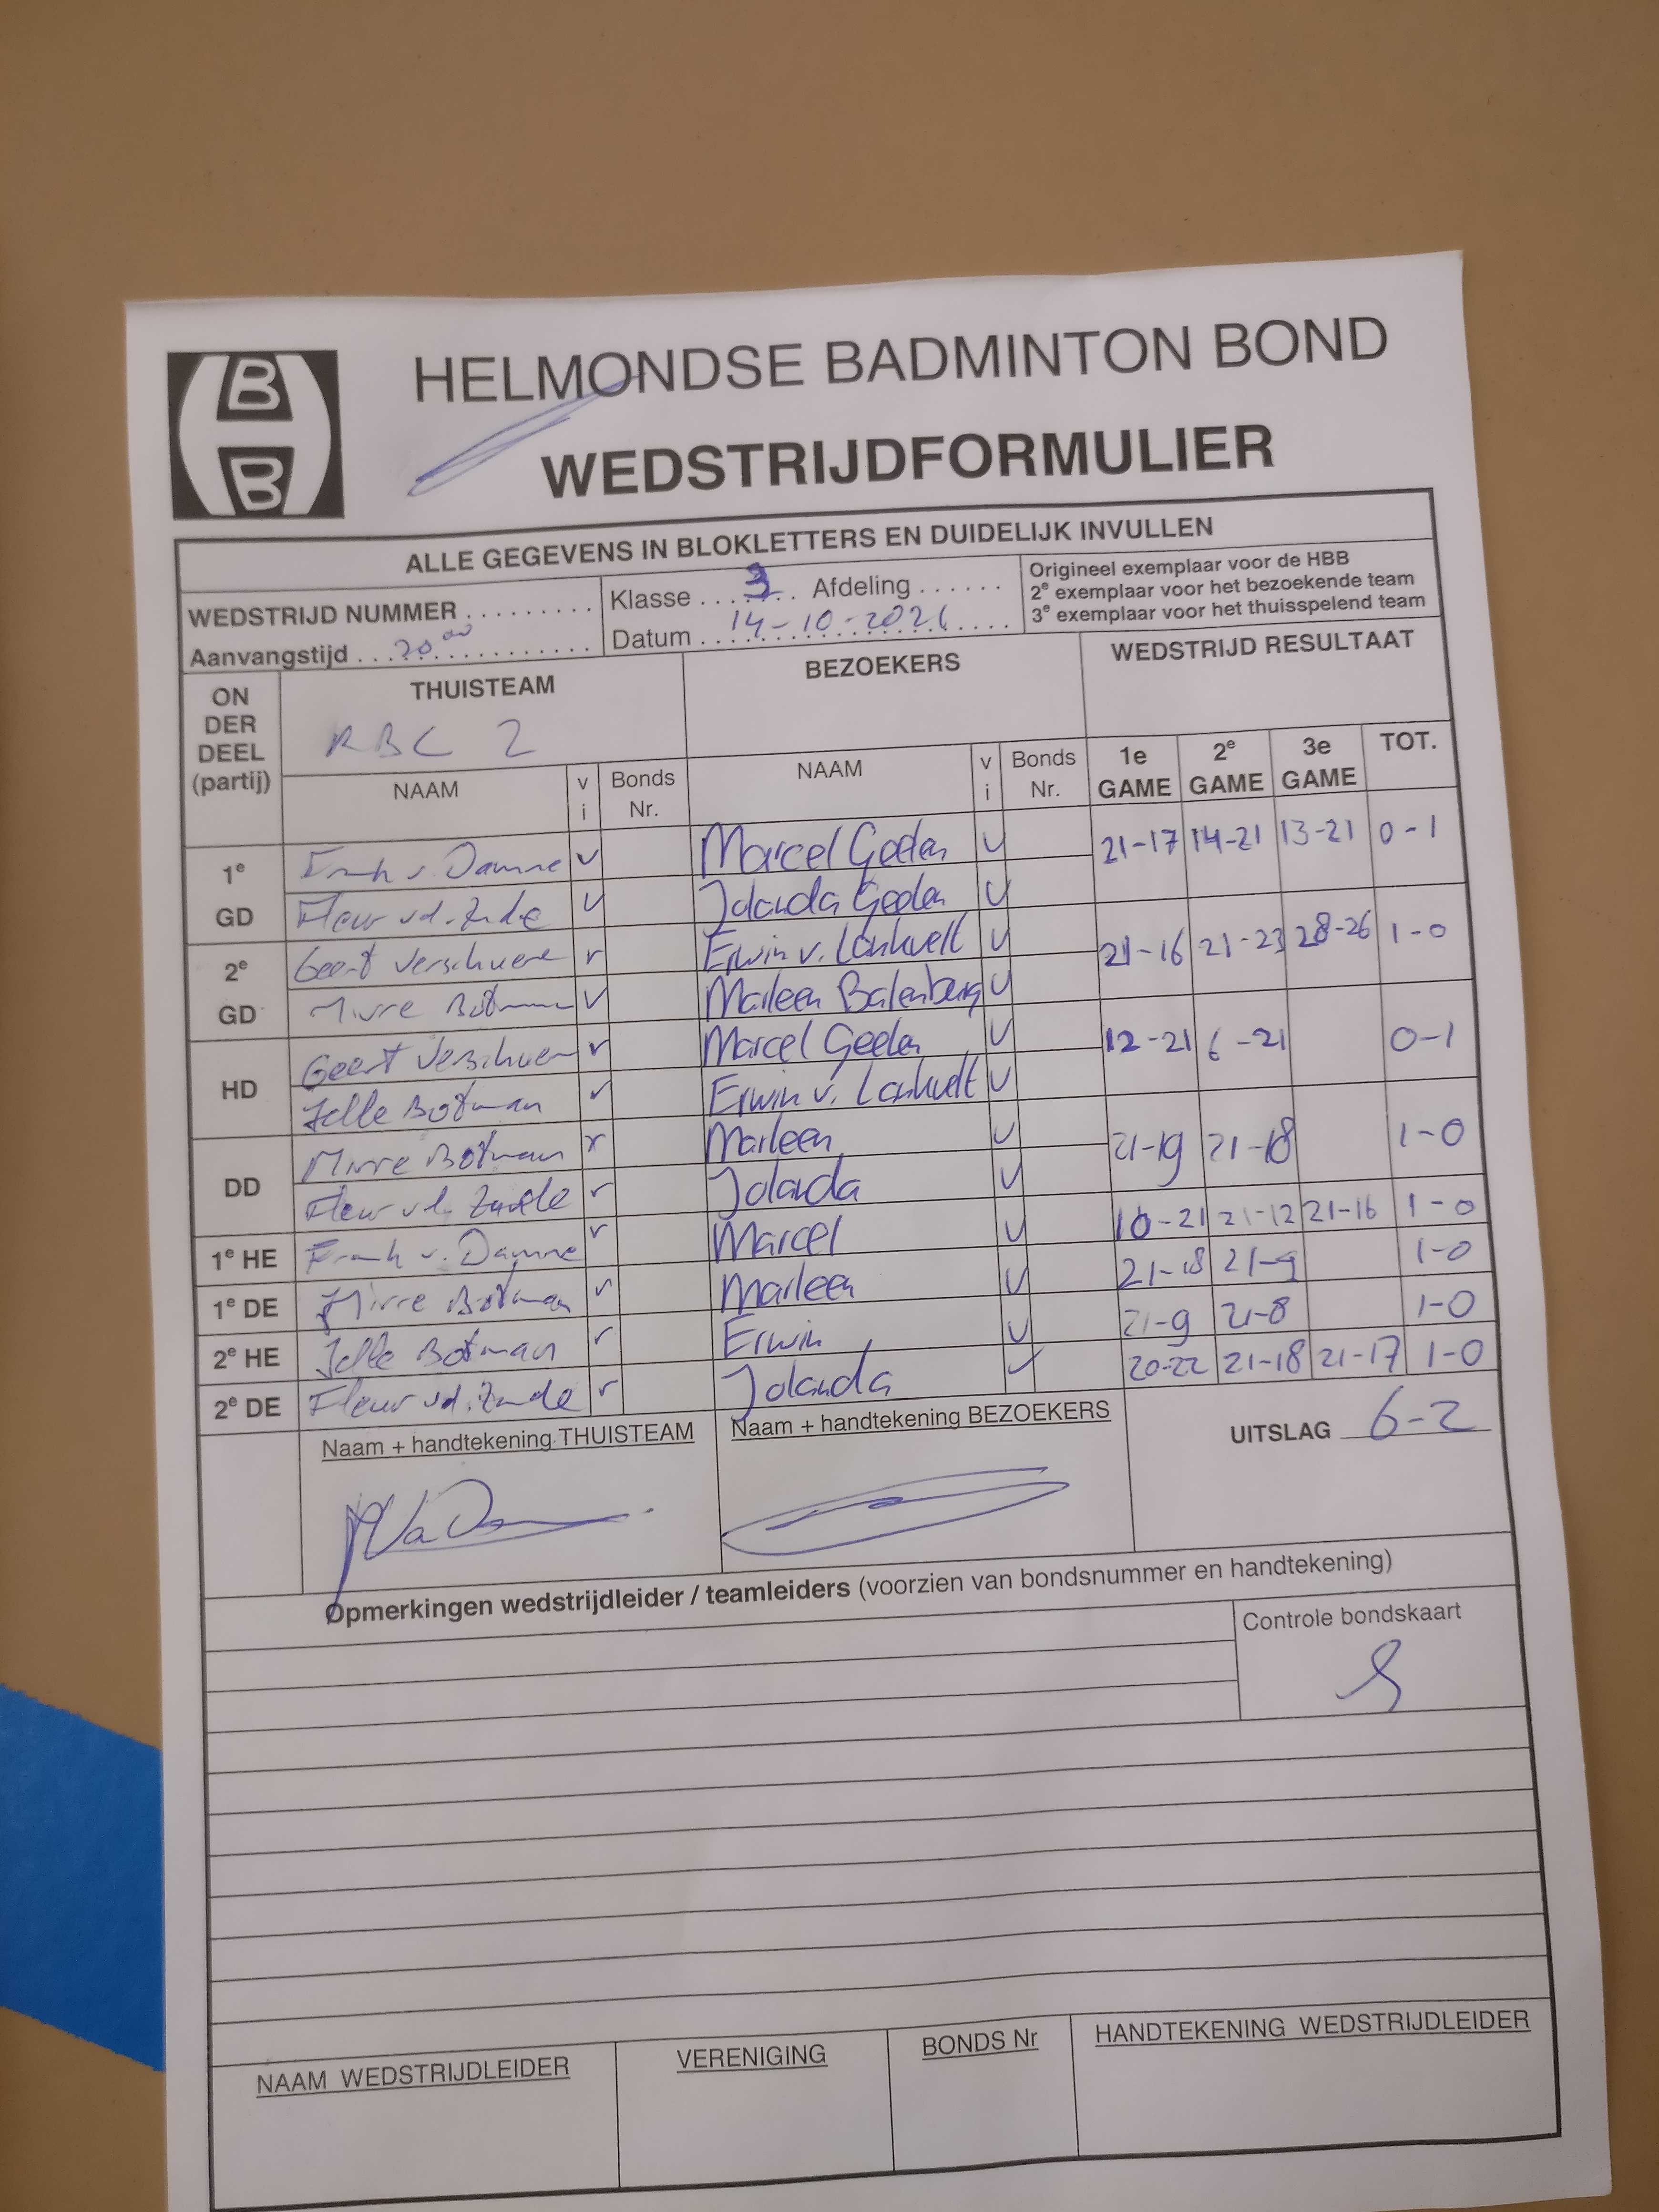 B
B
HELMONDSE BADMINTON BOND
WEDSTRIJDFORMULIER
ALLE GEGEVENS IN BLOKLETTERS EN DUIDELIJK INVULLEN
WEDSTRIJD NUMMER .........
Aanvangstijd ... 20⁰⁰ ............
Klasse .... 3 .. Afdeling ......
Datum .... 14-10-2021 ....
Origineel exemplaar voor de HBB
2e exemplaar voor het bezoekende team
3e exemplaar voor het thuisspelend team
ON DER DEEL (partij)
THUISTEAM
RBC 2
BEZOEKERS
WEDSTRIJD RESULTAAT
NAAM v i Bonds Nr. NAAM v i Bonds Nr. 1e GAME 2e GAME 3e GAME TOT.
1e GD Frank v. Damme v Marcel Geelen v 21-17 14-21 13-21 0-1
Fleur vd. Zande v Jolanda Geelen v
2e GD Geert Verschuere v Erwin v. Lankvelt v 21-16 21-23 28-26 1-0
Mirre Botman v Marleen Balenberg v
HD Geert Verschuer v Marcel Geelen v 12-21 6-21 0-1
Jelle Botman v Erwin v. Lankvelt v
DD Mirre Botman v Marleen v 21-19 21-18 1-0
Fleur vd. Zande v Jolanda v
1e HE Frank v. Damme v Marcel v 10-21 21-12 21-16 1-0
1e DE Mirre Botman v Marleen v 21-18 21-9 1-0
2e HE Jelle Botman v Erwin v 21-9 21-8 1-0
2e DE Fleur vd. Zande v Jolanda v 20-22 21-18 21-17 1-0
Naam + handtekening THUISTEAM
Naam + handtekening BEZOEKERS
UITSLAG 6-2
Opmerkingen wedstrijdleider / teamleiders (voorzien van bondsnummer en handtekening)
Controle bondskaart
NAAM WEDSTRIJDLEIDER
VERENIGING
BONDS Nr
HANDTEKENING WEDSTRIJDLEIDER